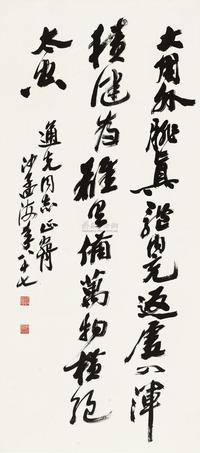 大用外腓真體内充返虛入渾
積健為雄具備萬物橫絕
太空
通先同志正舟
沙孟海年八十七